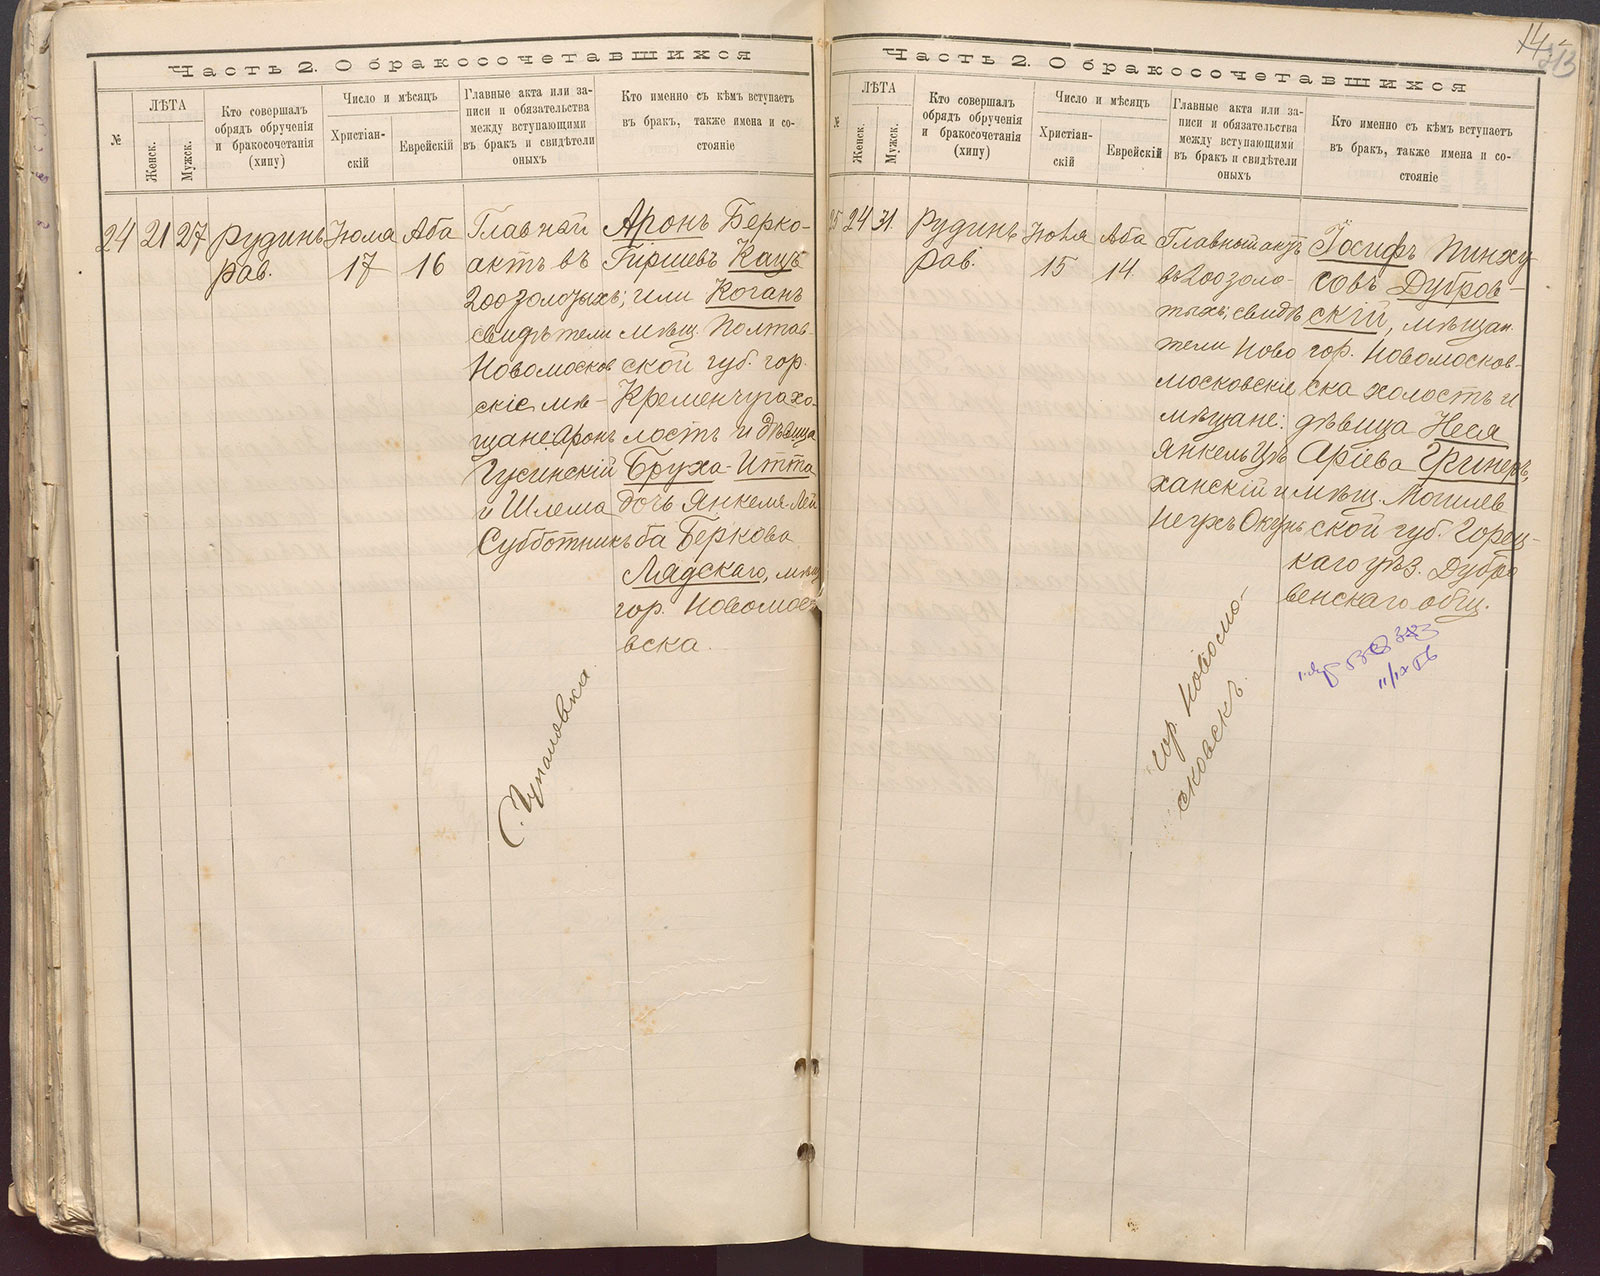 Часть 2. О бракосочетавшихся
№
ЛѢТА
Женск.
Мужск.
Кто совершалъ
обрядъ обрученія
и бракосочетанія
(хипу)
Число и мѣсяцъ
Христіан-
скій
Еврейскій
Главные акта или за-
писи и обязательства
между вступающими
въ бракъ и свидѣтели
оныхъ
Кто именно съ кѣмъ вступаетъ
въ бракъ, также имена и со-
стояніе
24
21
27
Рудинъ
рав.
17
Аба
16
Главный
актъ въ
200 золотыхъ;
свидѣтели
Новомосков
скіе мѣ-
щане: Аронъ
Гусинскій
и Шлема
Субботникъ
Аронъ Берко-
Гиршевъ Кацъ
или Коганъ
мѣщ. Полтав-
ской губ. гор.
Кременчуга хо-
лостъ и дѣвица
Бруха-Итта
дочь Янкеля-Лей
ба Беркова
Лядскаго, мѣщ
гор. Новомоск
вска.
14
Часть 2. О бракосочетавшихся
№
ЛѢТА
Женск.
Мужск.
Кто совершалъ
обрядъ обрученія
и бракосочетанія
(хипу)
Число и мѣсяцъ
Христіан-
скій
Еврейскій
Главные акта или за-
писи и обязательства
между вступающими
въ бракъ и свидѣтели
оныхъ
Кто именно съ кѣмъ вступаетъ
въ бракъ, также имена и со-
стояніе
25
24
31
Рудинъ
рав.
15
Аба
14
Главный актъ
въ 200 золо-
тыхъ; свидѣ
тели Ново
московскіе
мѣщане:
Янкель Цѣ
ханскій и
Окунь
Іосифъ Пинху
совъ Дубров-
скій, мѣщан.
гор. Новомосков-
ска холостъ и
дѣвица Неся
Аріева Гкинеръ,
мѣщ. Могилев
ской губ. Горец-
каго уѣз. Дубро
венскаго общ.
гор. Новомо-
сковскъ.